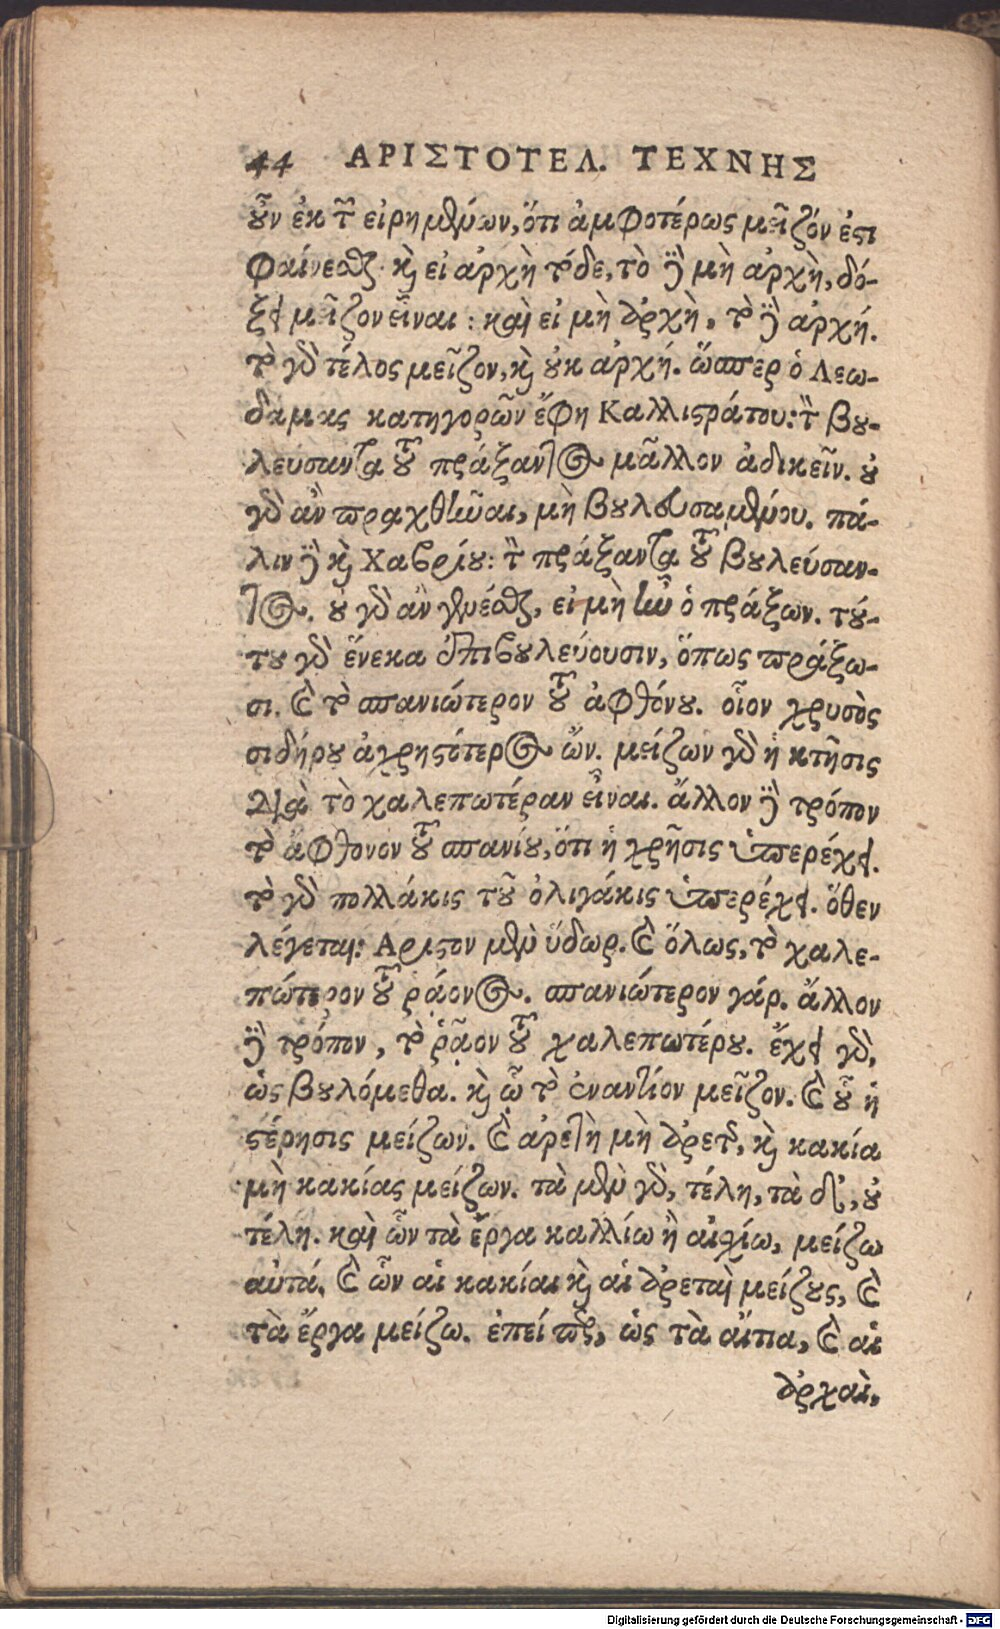 44 ΑΡΙΣΤΟΤΕΛ. ΤΕΧΝΗΣ
οὖν ἐκ τῶν εἰρημένων, ὅτι ἀμφοτέρως μεῖζόν ἐστι
φαίνεσθαι· καὶ εἰ ἀρχὴ τόδε, τὸ δὲ μὴ ἀρχὴ, δό-
ξει μεῖζον εἶναι : καὶ εἰ μὴ ἀρχὴ, τὸ δὲ ἀρχή.
τὸ γὰρ τέλος μεῖζον, καὶ οὐκ ἀρχή. ὥσπερ ὁ Λεω-
δάμας κατηγορῶν ἔφη Καλλιστράτου: τὸν βου-
λεύσαντα τοῦ πράξαντος μᾶλλον ἀδικεῖν. οὐ
γὰρ ἂν πραχθῆναι, μὴ βουλευσαμένου. πά-
λιν δὲ καὶ Χαβρίου: τὸν πράξαντα τοῦ βουλεύσαν-
τος. οὐ γὰρ ἂν γενέσθαι, εἰ μὴ ἦν ὁ πράξων. τού-
του γὰρ ἕνεκα ἐπιβουλεύουσιν, ὅπως πράξω-
σι. καὶ τὸ σπανιώτερον τοῦ ἀφθόνου. οἷον χρυσὸς
σιδήρου ἀχρηστότερος ὤν. μείζων γὰρ ἡ κτῆσις
διὰ τὸ χαλεπωτέραν εἶναι. ἄλλον δὲ τρόπον
τὸ ἄφθονον τοῦ σπανίου, ὅτι ἡ χρῆσις ὑπερέχει.
τὸ γὰρ πολλάκις τοῦ ὀλιγάκις ὑπερέχει. ὅθεν
λέγεται: Αριστον μὲν ὕδωρ. καὶ ὅλως, τὸ χαλε-
πώτερον τοῦ ῥάονος. σπανιώτερον γάρ. ἄλλον
δὲ τρόπον, τὸ ῥᾷον τοῦ χαλεπωτέρου. ἔχει γὰρ,
ὡς βουλόμεθα. καὶ ᾧ τὸ ἐναντίον μεῖζον. καὶ οὗ ἡ
στέρησις μείζων. καὶ ἀρετὴ μὴ ἀρετῆς, καὶ κακία
μὴ κακίας μείζων. τὰ μὲν γὰρ, τέλη, τὰ δ', οὐ
τέλη. καὶ ὧν τὰ ἔργα καλλίω ἢ αἰσχίω, μείζω
αὐτά. καὶ ὧν αἱ κακίαι καὶ αἱ ἀρεταὶ μείζους, καὶ
τὰ ἔργα μείζω. ἐπείπερ, ὡς τὰ αἴτια, καὶ αἱ
ἀρχαὶ,
Digitalisierung gefördert durch die Deutsche Forschungsgemeinschaft - DFG